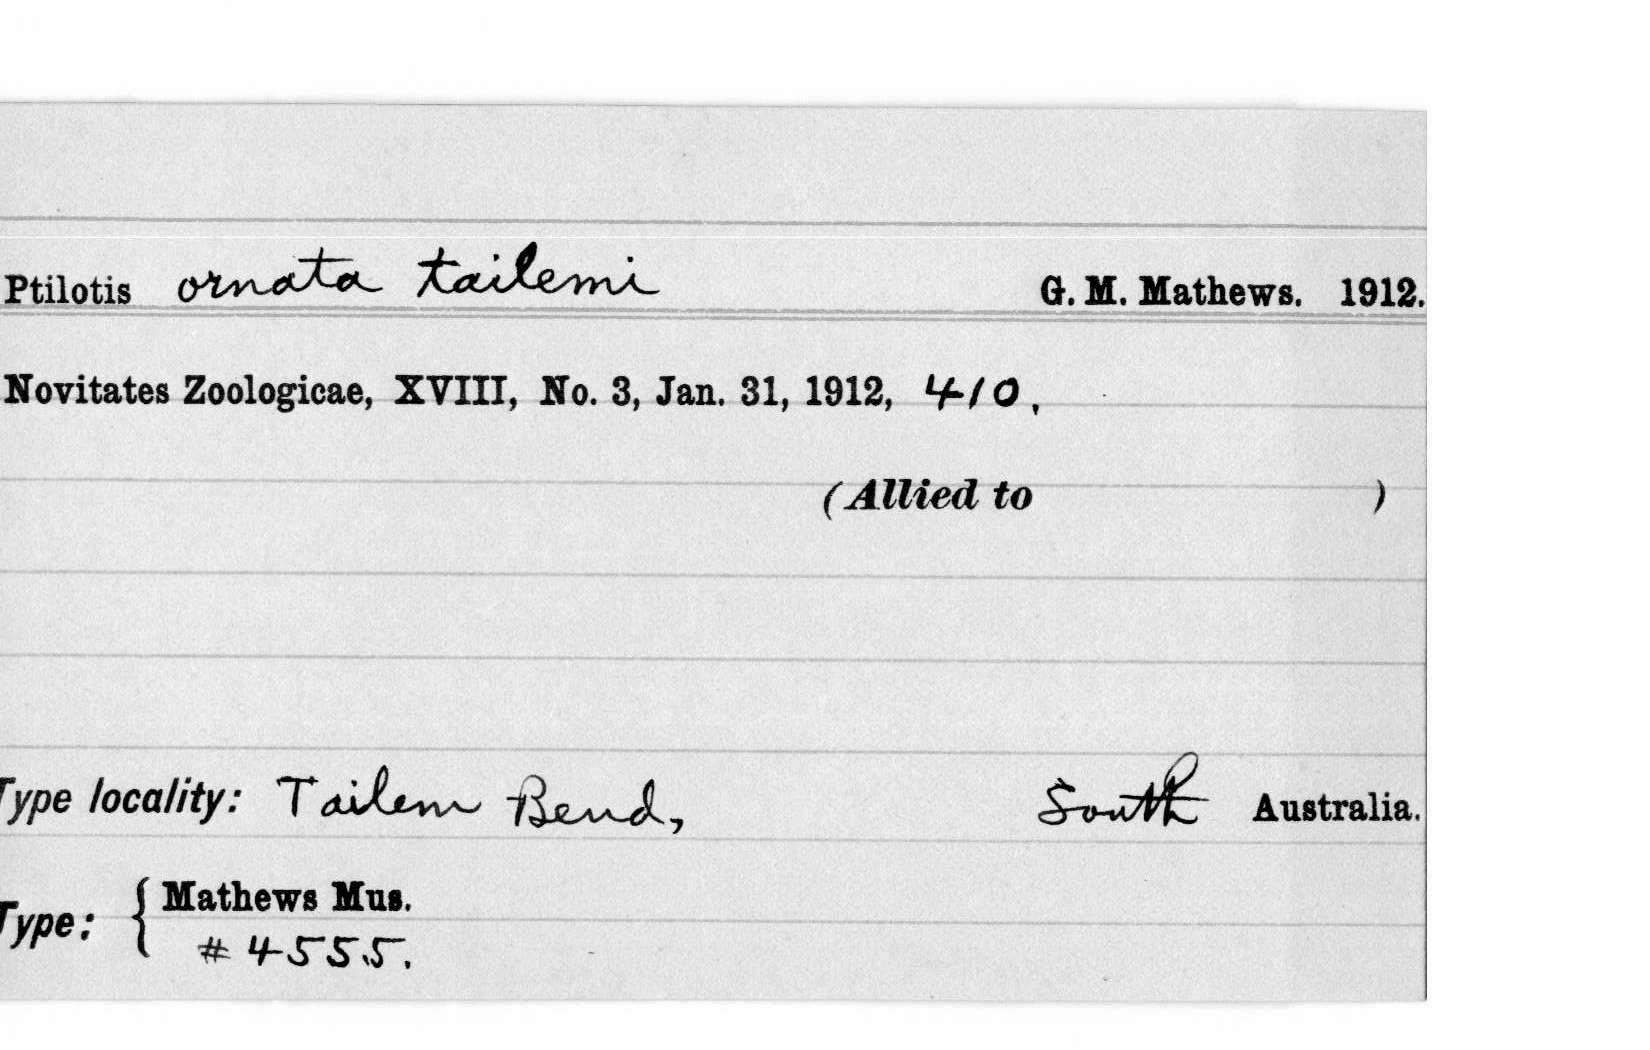 Ptilotis ornata tailemi G. M. Mathews. 1912.
Novitates Zoologicae, XVIII, No. 3, Jan. 31, 1912, 410.
(Allied to )
Type locality: Tailem Bend, South Australia.
Type: { Mathews Mus.
# 4555.